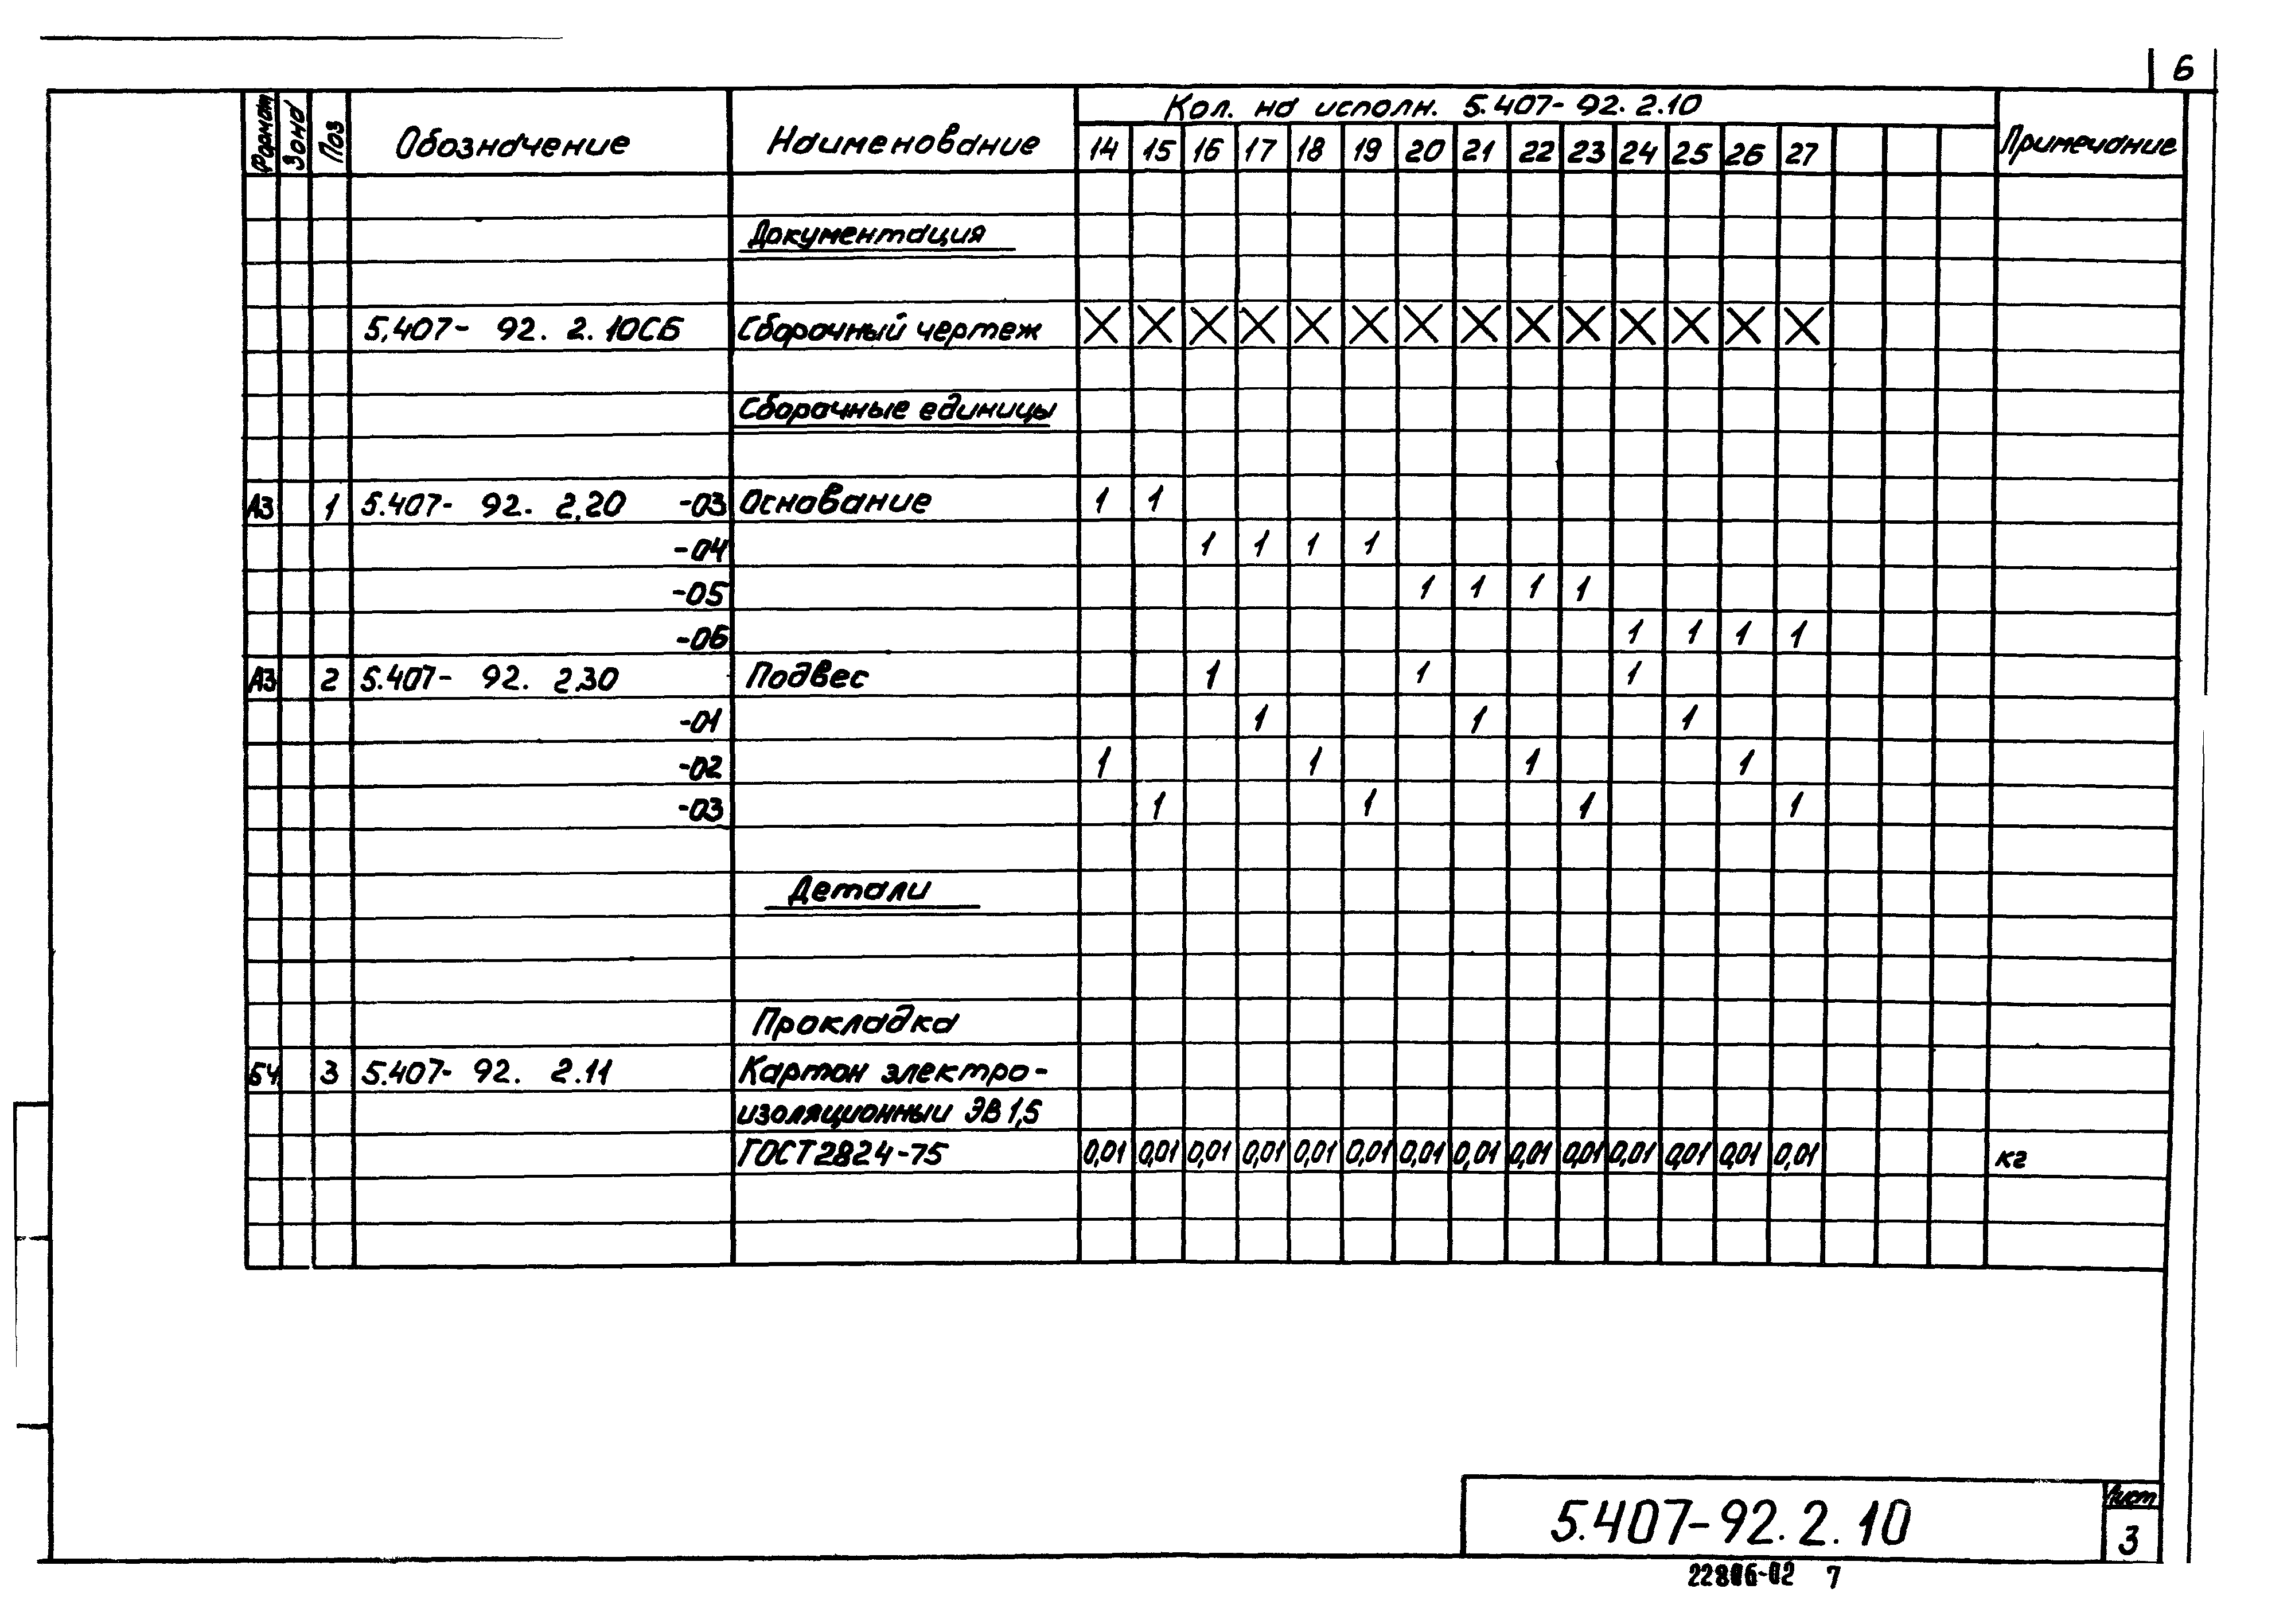 6
Формат Зона Поз Обозначение Наименование Кол. на исполн. 5.407-92.2.10 Примечание
14 15 16 17 18 19 20 21 22 23 24 25 26 27
Документация
5.407- 92. 2. 10СБ Сборочный чертеж X X X X X X X X X X X X X X
Сборочные единицы
А3 1 5.407- 92. 2.20 -03 Основание 1 1
-04 1 1 1 1
-05 1 1 1 1
-06 1 1 1 1
А3 2 5.407- 92. 2.30 Подвес 1 1 1
-01 1 1 1
-02 1 1 1 1
-03 1 1 1 1
Детали
Прокладка
БЧ 3 5.407- 92. 2.11 Картон электро-
изоляционный ЭВ 1,5
ГОСТ 2824-75 0,01 0,01 0,01 0,01 0,01 0,01 0,01 0,01 0,01 0,01 0,01 0,01 0,01 0,01 кг
5.407-92.2.10
Лист
3
22806-02 7